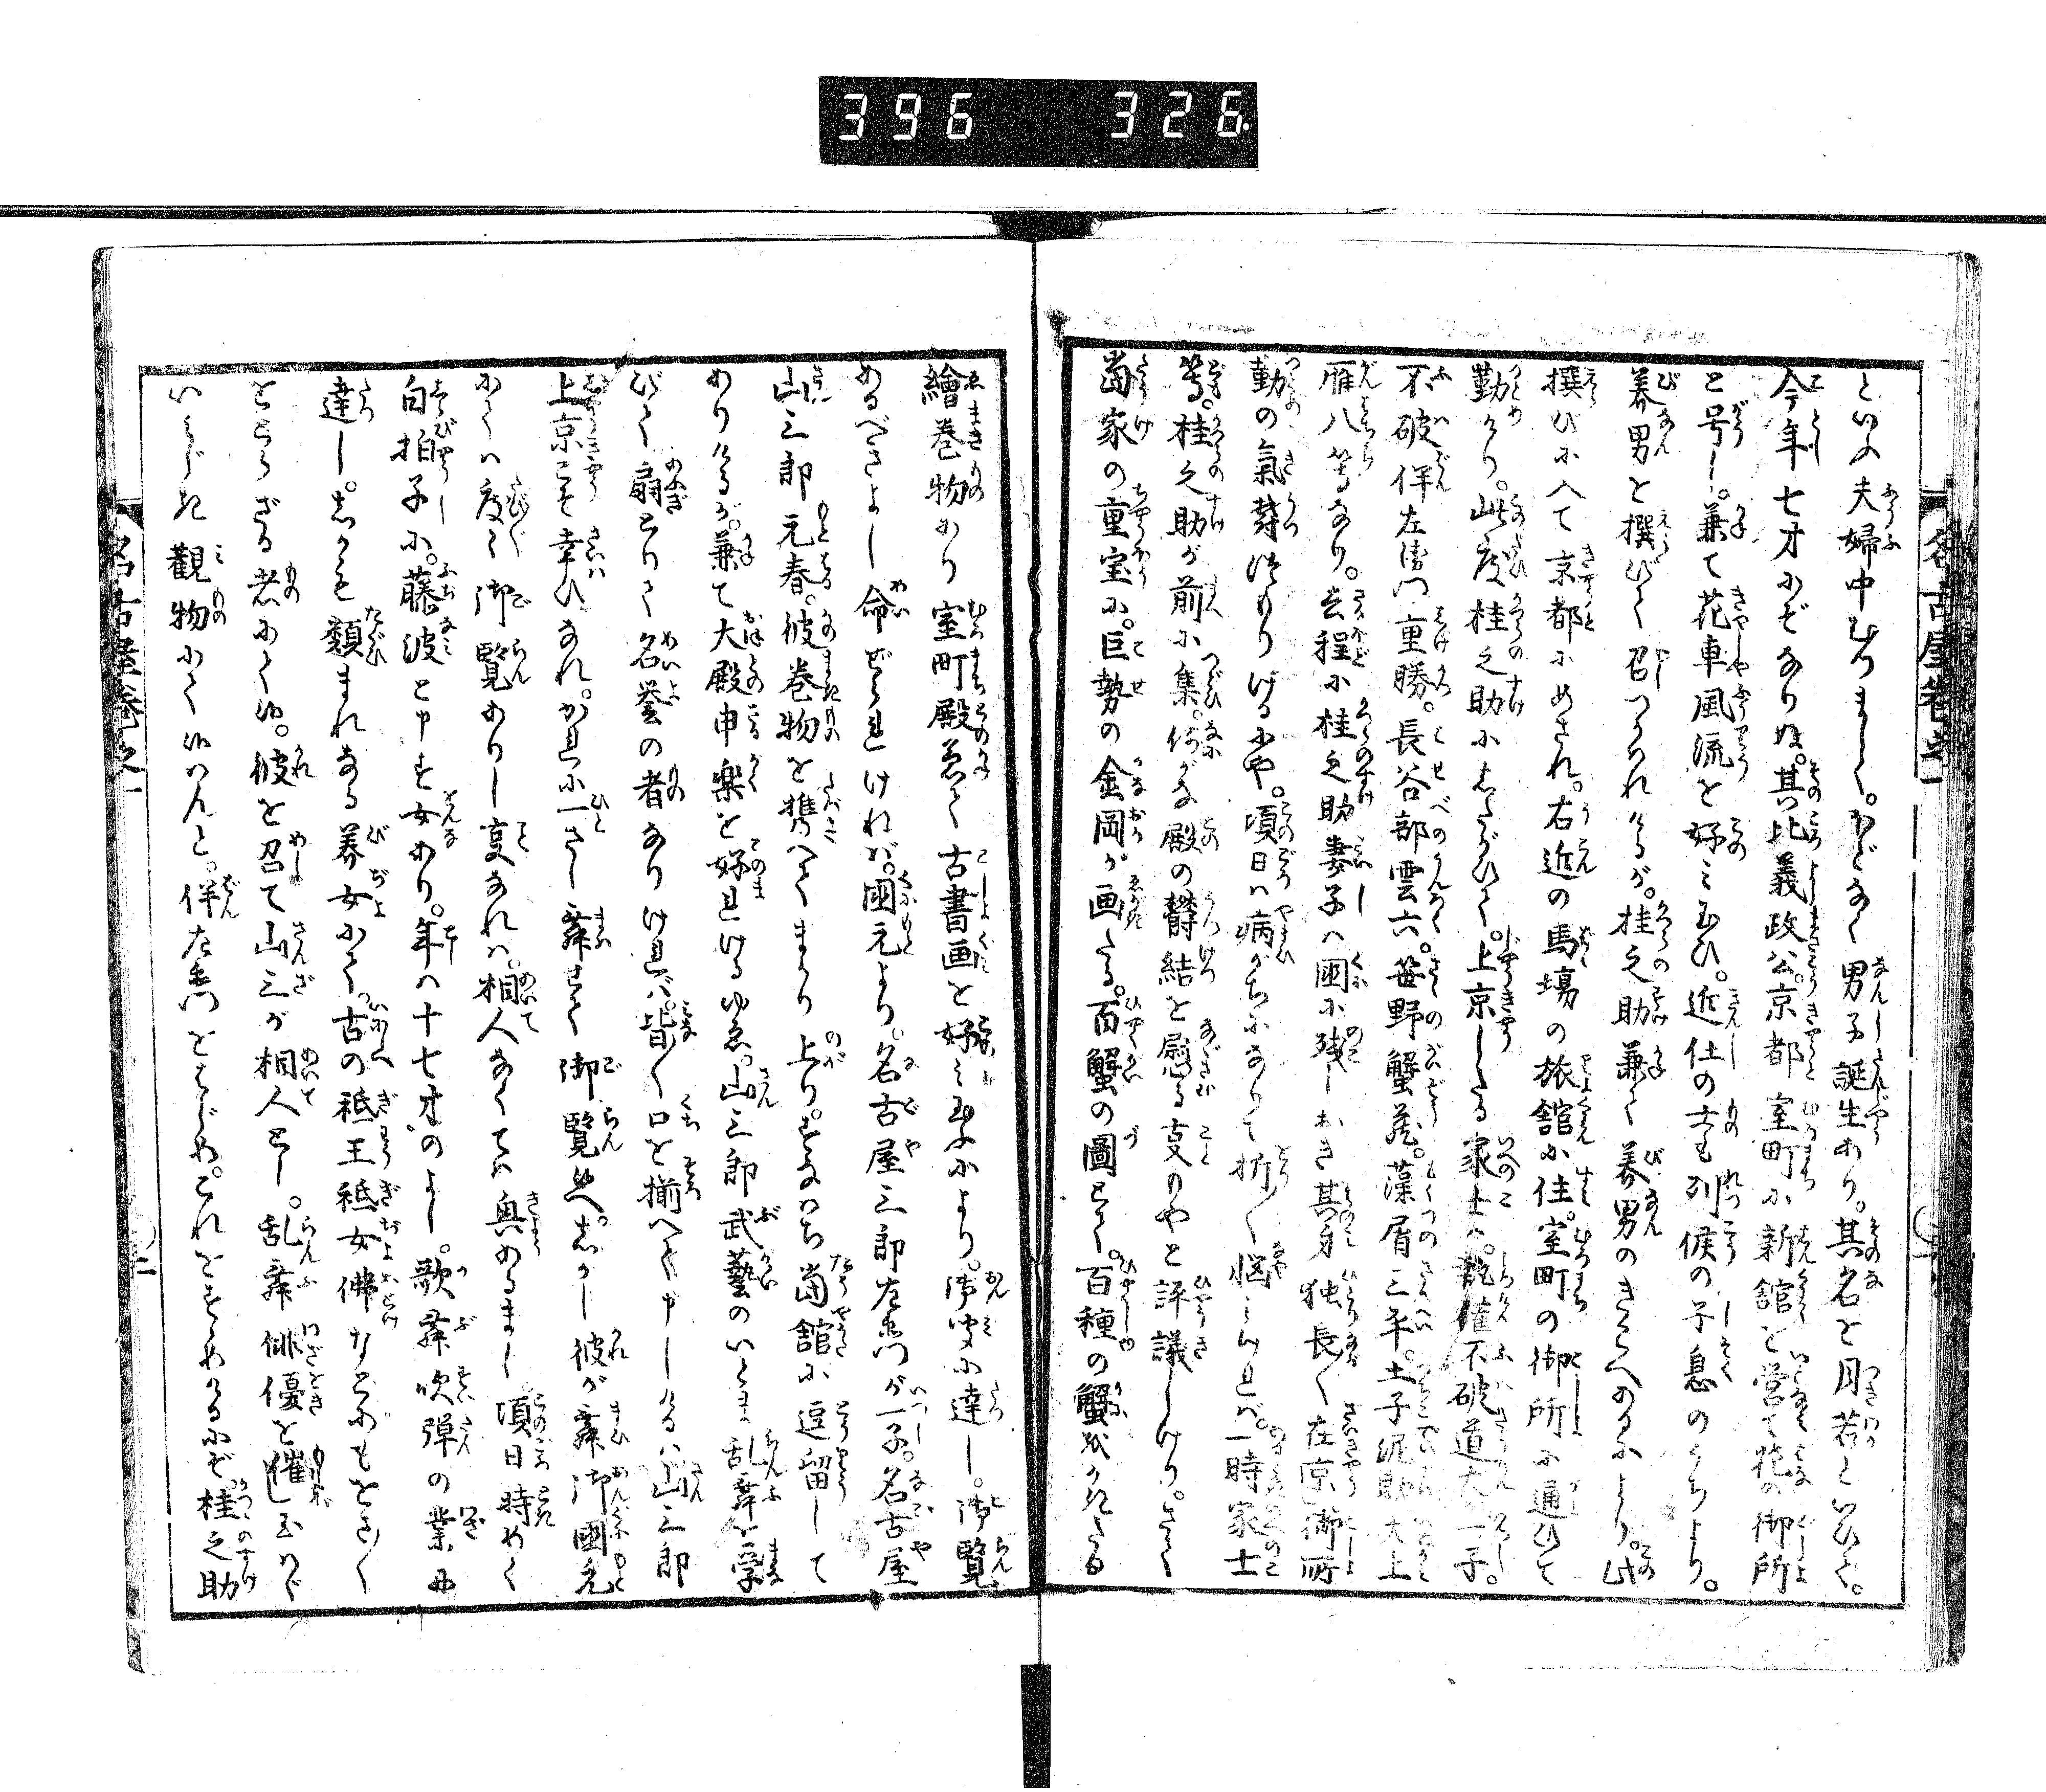 396 326
といふ夫婦中むつましく。ほどなく男子誕生あり。其名を月若といひて。
今年七才にぞなりぬ。其比義政公。京都室町に新館を営て花の御所
と号し。兼て花車風流を好み玉ひ。近仕の士も列侯の子息のうちより。
美男を撰びて召つかはれけるが。桂之助兼て美男のきこへあるにより。此
撰びに入て京都にめされ。右近の馬場の旅舘に住。室町の御所に通ひて
勤けり。此度桂之助にしたがひて。上京したる家士は。執権不破道犬一子。
不破伴左衛門重勝。長谷部雲六。笹野蟹蔵。藻屑三平。土子泥助。犬上
雁八等なり。去程に桂之助妻子ハ国に残しおき其身独長く在京御所
勤の氣欝つもりけるにや。頃日ハ病がちになりて折〱悩みければ。一時家士
等。桂之助が前に集。何がな殿の欝結を慰る事もやと評議しけり。さて
當家の重宝に。巨勢の金岡が画たる。百蟹の圖とて。百種の蟹をかきたる
繪巻物あり室町殿急て古書画を好み玉ふにより。御聞に達し。御覧
あるべきよし命ぜられければ。國元より。名古屋三郎左衛門が一子。名古屋
山三郎元春。彼巻物を携へてまかり上り。すなはち當舘に逗留して
ありけるが。兼て大殿申楽を好れけるゆゑ。山三郎武藝のいとま乱舞を学
びて扇とりて名誉の者なりければ。皆〱口を揃へて申しけるハ山三郎
上京こそ幸ひなれ。かれに一さし舞せて御覧候へ。しかし彼が舞御國元
にてハ度〱御覧ありし事なれハ。相人なくてハ興あるまじ頃日時めく
白拍子に。藤波と申す女あり。年ハ十七才のよし。歌舞吹弾の業に
達し。しかも類まれなる美女にて。古の祇王祇女佛などにもをさ〱
おとらざる者にて候。彼を召て山三が相人とし。乱舞俳優を催し玉はゞ
いみじき觀物にて候はんと。伴左衛門をはじめ。これをすゝめけるにぞ桂之助
名古屋巻之一
二